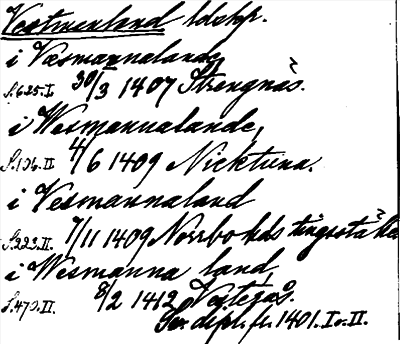 Vestmanland ldskp.
i Væsmannalande
S.625.I. 30/3 1407 Strengnäs.
i Wesmannalande,
S.136.II 4/6 1409 Nicktuna.
i Vesmannaland
S.223.II. 7/11 1409 Norrbohds tingsställe
i Wesmanna land,
S.470.II. 8/2 1412 Vesterås.
Sv. dipl. fr. 1401. I o. II.